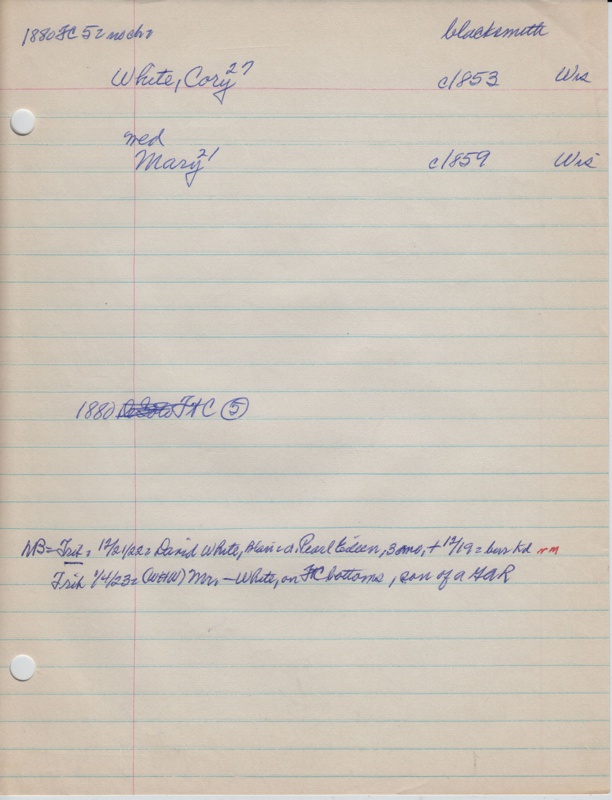 1880 FC 5 = no chn blacksmith
White, Cory 27 c1853 Wis
med
Mary 21 c1859 Wis
1880 FTC ⑤
NB = Trib = 12/21/22 = David White, Blair = d. Pearl Eileen, 3 mo, + 12/19 = burs Kd rm
Trib 1/4/23 = (WHW) Mr. — White, on FTC bottoms, son of a GAR